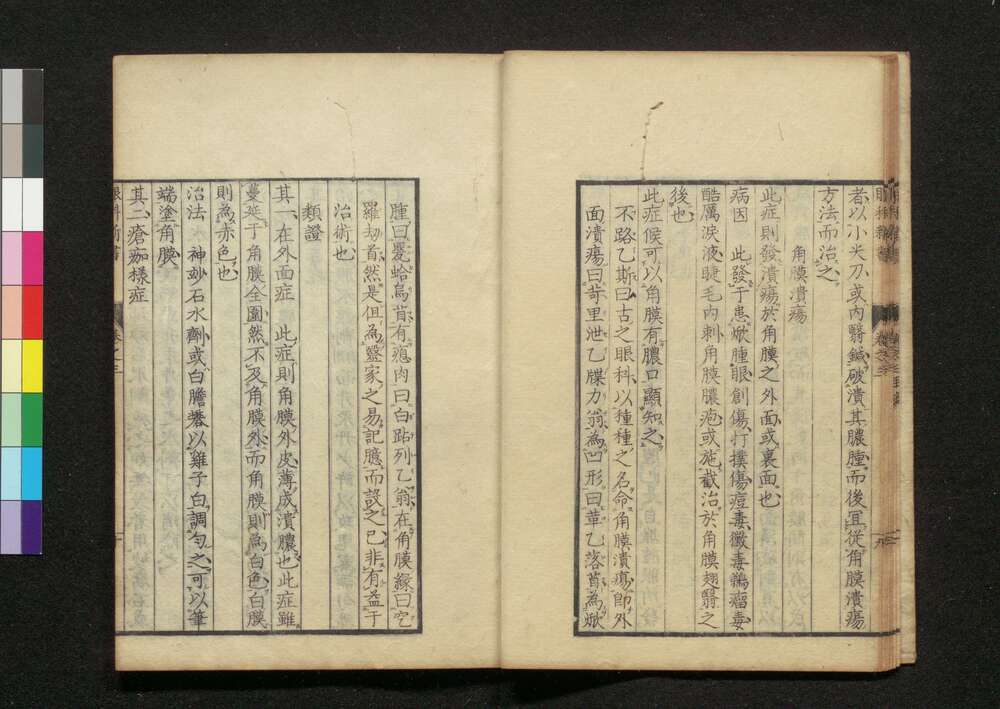 者以小尖刀或内翳鍼破潰其膿腫而後宜從角膜潰瘍
方法而治之
角膜潰瘍
此症則發潰瘍於角膜之外面或裏面也
病因 此發于患焮腫眼創傷打撲傷痘毒黴毒鶴瘤毒
酷厲淚液睫毛内刺角膜膿疱或施截治於角膜翅翳之
後也
此症候可以角膜有膿口顯知之
不路乙斯曰古之眼科以種種之名命角膜潰瘍即外
面潰瘍曰苛里泄乙牒力翁為凹形曰葦乙落首為焮
腫曰靉蛤烏肯有瘜肉曰白跕列乙翁在角膜緣曰空
羅劫首然是但為醫家之易記臆而設之已非有益于
治術也
類證
其一在外面症 此症則角膜外皮薄成潰膿也此症雖
蔓莚于角膜全圍然不及角膜外而角膜則為白色白膜
則為赤色也
治法 神妙石水劑或白膽礬以雞子白調勻之可以筆
端塗角膜
其二瘡痂樣症
眼科新書 卷之三